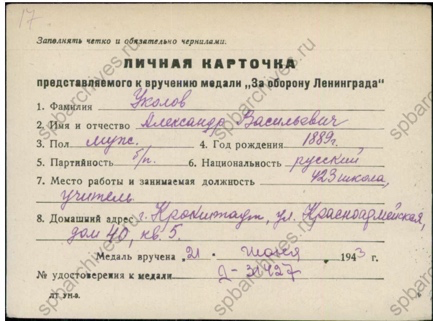 17.
Заполнять четко и обязательно чернилами.
ЛИЧНАЯ КАРТОЧКА
представляемого к вручению медали „За оборону Ленинграда"
1. Фамилия Уколов
2. Имя и отчество Александр Васильевич
3. Пол муж. 4. Год рождения 1889г.
5. Партийность б/п. 6. Национальность русский
7. Место работы и занимаемая должность 423 школа,
учитель
8. Домашний адрес г. Кронштадт, ул. Красноармейская,
дом 40, кв. 5.
Медаль вручена „21" июня 1943 г.
№ удостоверения к медали Д-31427
spbarchives.ru